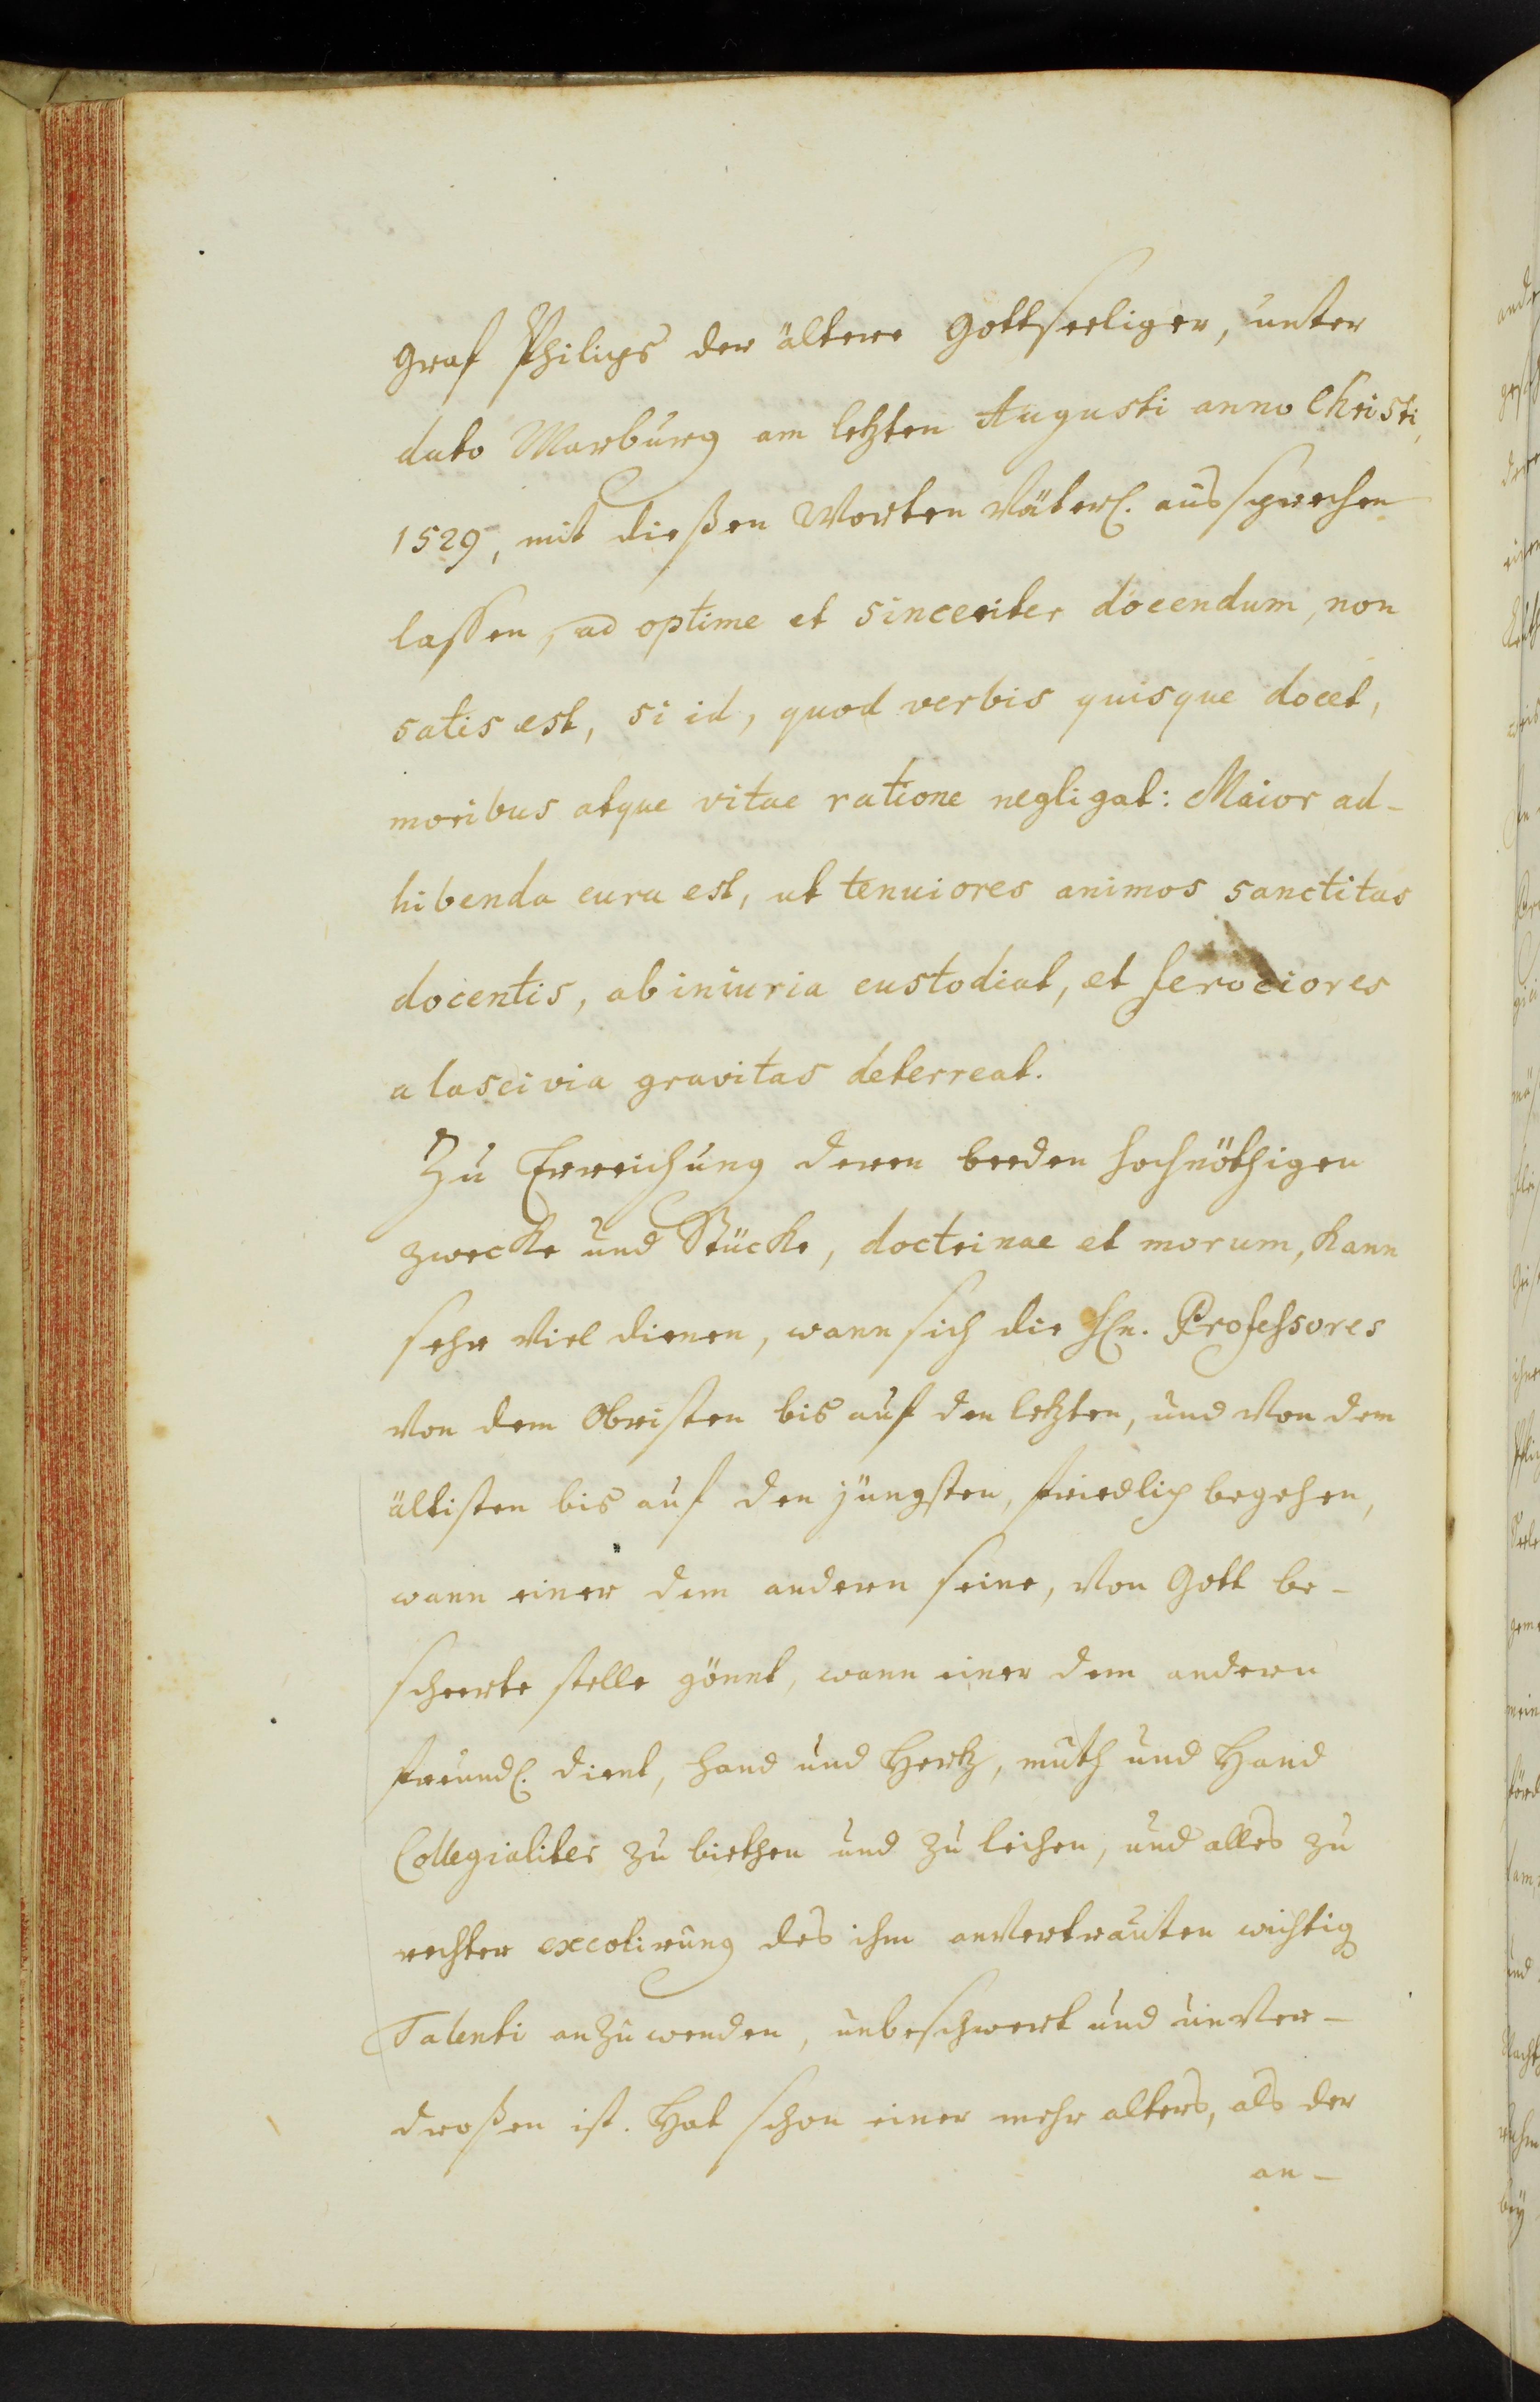 graf Philips der ältere Gottseeliger, unter
dato Marburg am letzten Augusti anno Christi,
1529, mit dießen Worten Väterl. aussprechen
lassen, ad optime et sinceriter docendum, non
satis est, si id, quod verbis quisque docet,
moribus atque vitae ratione negligat: Maior ad-
hibenda cura est, ut tenuiores animos sanctitas
docentis, ab iniuria custodiat, et ferociores
a lascivia gravitas deterreat.
Zu Erreichung deren beeden hochnöthigen
zwecke und Stücke, doctrinae et morum, kann
sehr Viel dienen, wann sich die Hn. Professores
Von dem Obristen bis auf den letzten, und Von dem
ältisten bis auf den jüngsten, friedlich begehen,
wann einer dem andern seine, Von Gott be-
scheerte stelle gönnt, wann einer dem andern
freundl. dient, hand und Hertz, muth und Hand
Collegialiter zu biethen und zu leihen, und alles zu
rechter excolirung des ihm anVertrauten wichtig
Talenti anzuwenden, unbeschwert und unVer-
droßen ist. Hat schon einer mehr alters, als der
an-